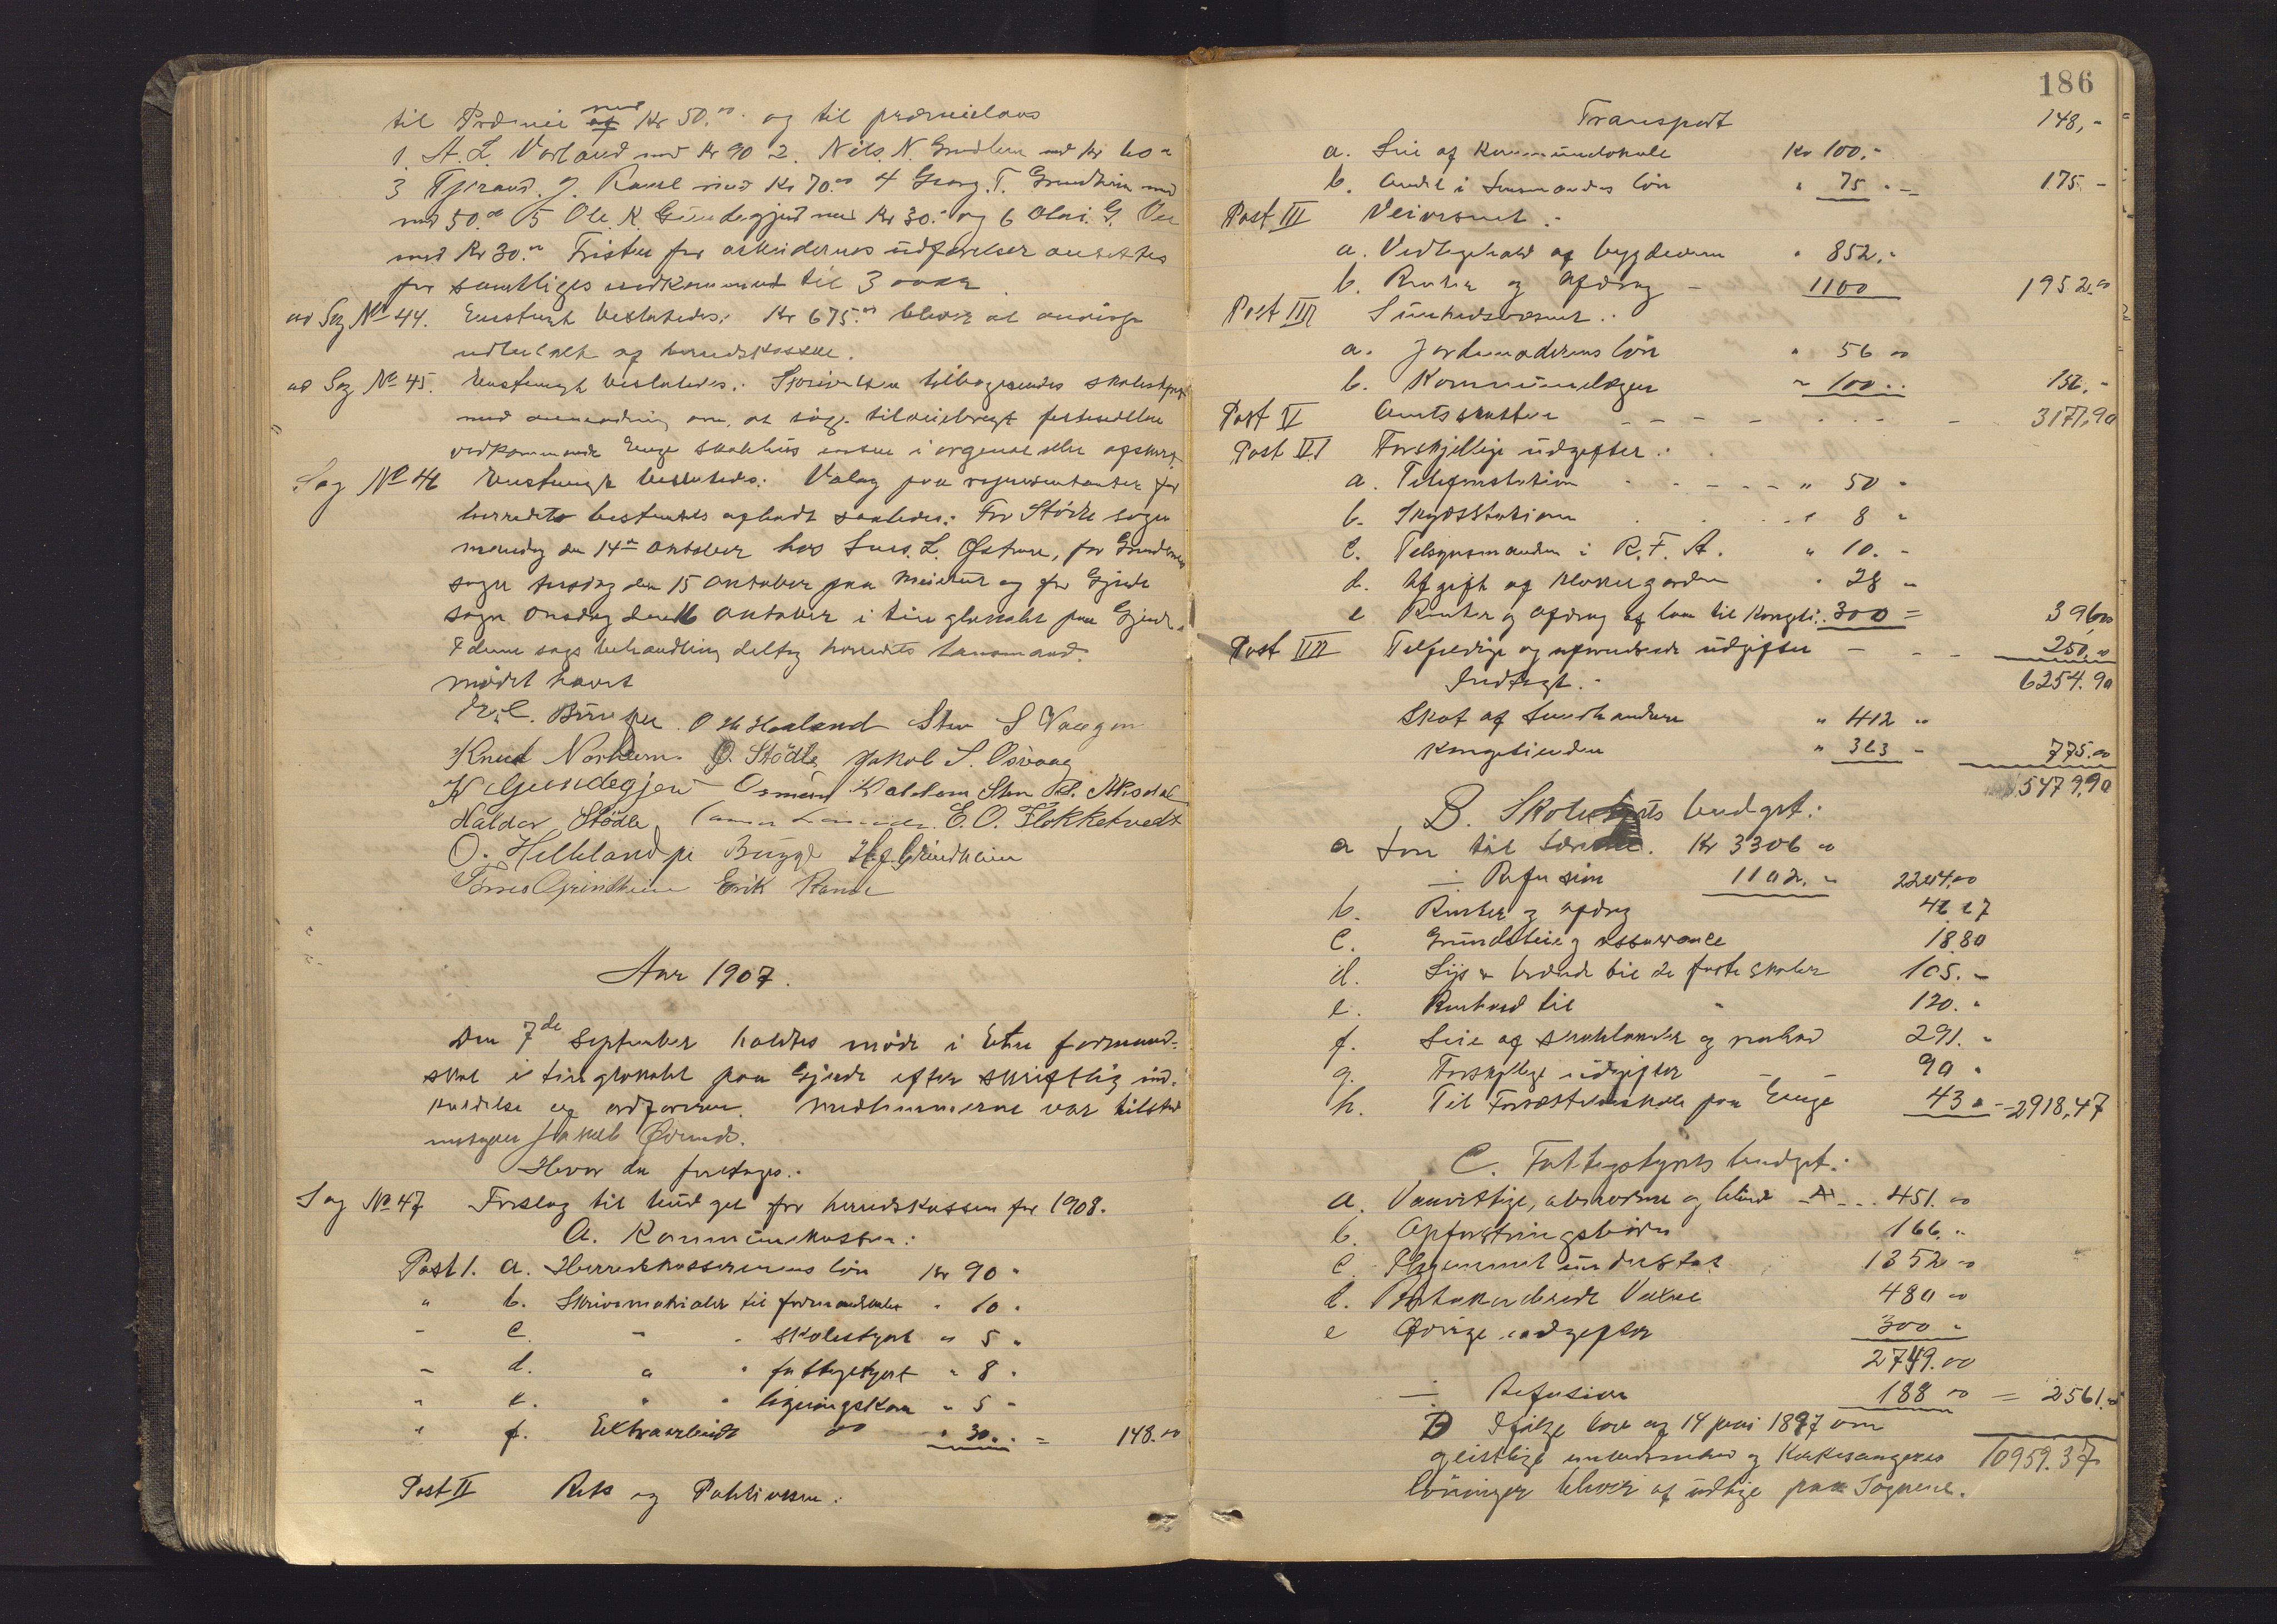 til Præmie med Kr 50.00 og til præmielaus
1. A. L. Vorland med Kr 90 2. Nils N. Grindheim med Kr 60 "
3 Tjerand J. Ramse med Kr 70.00 4 Georg T. Grindheim med
med 50.00 5 Ole K. Gundegjerd med Kr 30.- og 6 Olai. G.
med Kr 30.00 Fristen for arbeidernes udførelser ansettes
for samtliges vedkommend til 3 aar.
ad Sag No 44. Enstemigt besluttedes: Kr 675.00 bliver at
udbetalt af herredskassen.
ad Sag No 45. Enstemigt besluttedes: Skrivelsen tilbagesendes skolestyret
med anmodning om, at søge tilveiebragt festesedlene
vedkommende Enge skolehus enten i orginal eller afskrift.
Sag No 46 Enstemigt besluttedes: Valg paa representanter for
herredet bestemtes afholdt saaledes: For Stødle sogn
mandag den 14de Oktober hos L. Østrem, for Grindheim
sogn tirsdag den 15 Oktober paa Meieriet og for Gjerde
sogn Onsdag den 16 Oktober i tinglokalet paa Gjerde.
I denne sags behandling deltog herredets Lensmand.
mødet hævet
O H Haaland Sten S Vaagen
Knud Norheim. O. Stødle Jakob S. Osvaag
K Gundegjerd Osmund Kaldheim Sten
Haldor Stødle E. O. Flokketvedt
O. Helleland Bugge Grindheim
Tørres Grindheim Erik Ramse
Aar 1907.
Den 7de September holdtes møde i Etne formand-
skab i tinglokalet paa Gjerde efter skriftlig ind-
kaldelse af ordføreren. Medlemmerne var tilsted
Jakob
Hvor da foretoges:
Sag No 47 Forslag til budget for herredskassen for 1908.
A. Kommunekassen:
Post 1. a. Herredskassererens løn Kr 90 "
" b. Skrivematerialer til formandskabet " 10 "
" c. " " skolestyret " 5 "
" d. " " fattigstyret " 8 "
" e. " " ligningskom " 5 "
" f. Extraarbeide " 30.. = 148.00
Post II Rets og Politivæsen:
186
Transport 148,"
a. Leie af Kommunelokale Kr 100."
b. Andel i Lensmandes løn " 75 " 175 "
Post III Veivæsenet:
a. Vedligehold af bygdeveiene " 852."
b. Renter og Afdrag - 1100 1952.00
Post IIII Sundhedsvæsenet:
a. Jordemoderens løn " 56 00
b. Kommunelægen " 100.. 156."
Post V Amtsskatten - - - - 3171,90
Post VI Forskjellige udgifter:
a. Telefonstation - - - - " 50 "
b. Skydsstation " 8 "
c. Tilsynsmanden i R. F. A. " 10. "
d. Afgift af Klokkergarden " 28 "
e Renter og Afdrag af laan til Kongeti. 300 = 396,00
Post VII Tilfældige og uforudseede udgifter - - - 250,00
Indtægt: 6254.90
Skat af Landhandlere " 412 "
Kongetienden " 363 " 775.00
5479,90
B. Skolestyrets budget:
a Løn til Lærerne. Kr 3306 00
÷ Refusion 1102. " 2204.00
b. Renter og afdrag 46 67
c. Grundleie og assurance 18 80
d. Lys & brænde til de faste skoler 105. "
e. Renhold til " 120. "
f. Leie af skolelokaler og renhold 291. "
g. Forskjellige udgifter - - 90 "
h. Til Framhaldsskole paa Enge 43 " - 2918,47
C. Fattigstyrets budget:
a. Vanvittige, abnorme og blinde - - 451.00
b. Opfostringsbørn 166."
c. Hjemmet understøt 1352 00
d. Vaxne 480 00
e Øvrige udgifter 300 "
2749.00
÷ Refusion 188 00 = 2561.00
D Ifølge lov af 14 juni 1897 om
geistlige embedsmænd og Kirkesangeres 10959.37
lønninger bliver at udligne paa Sognene.